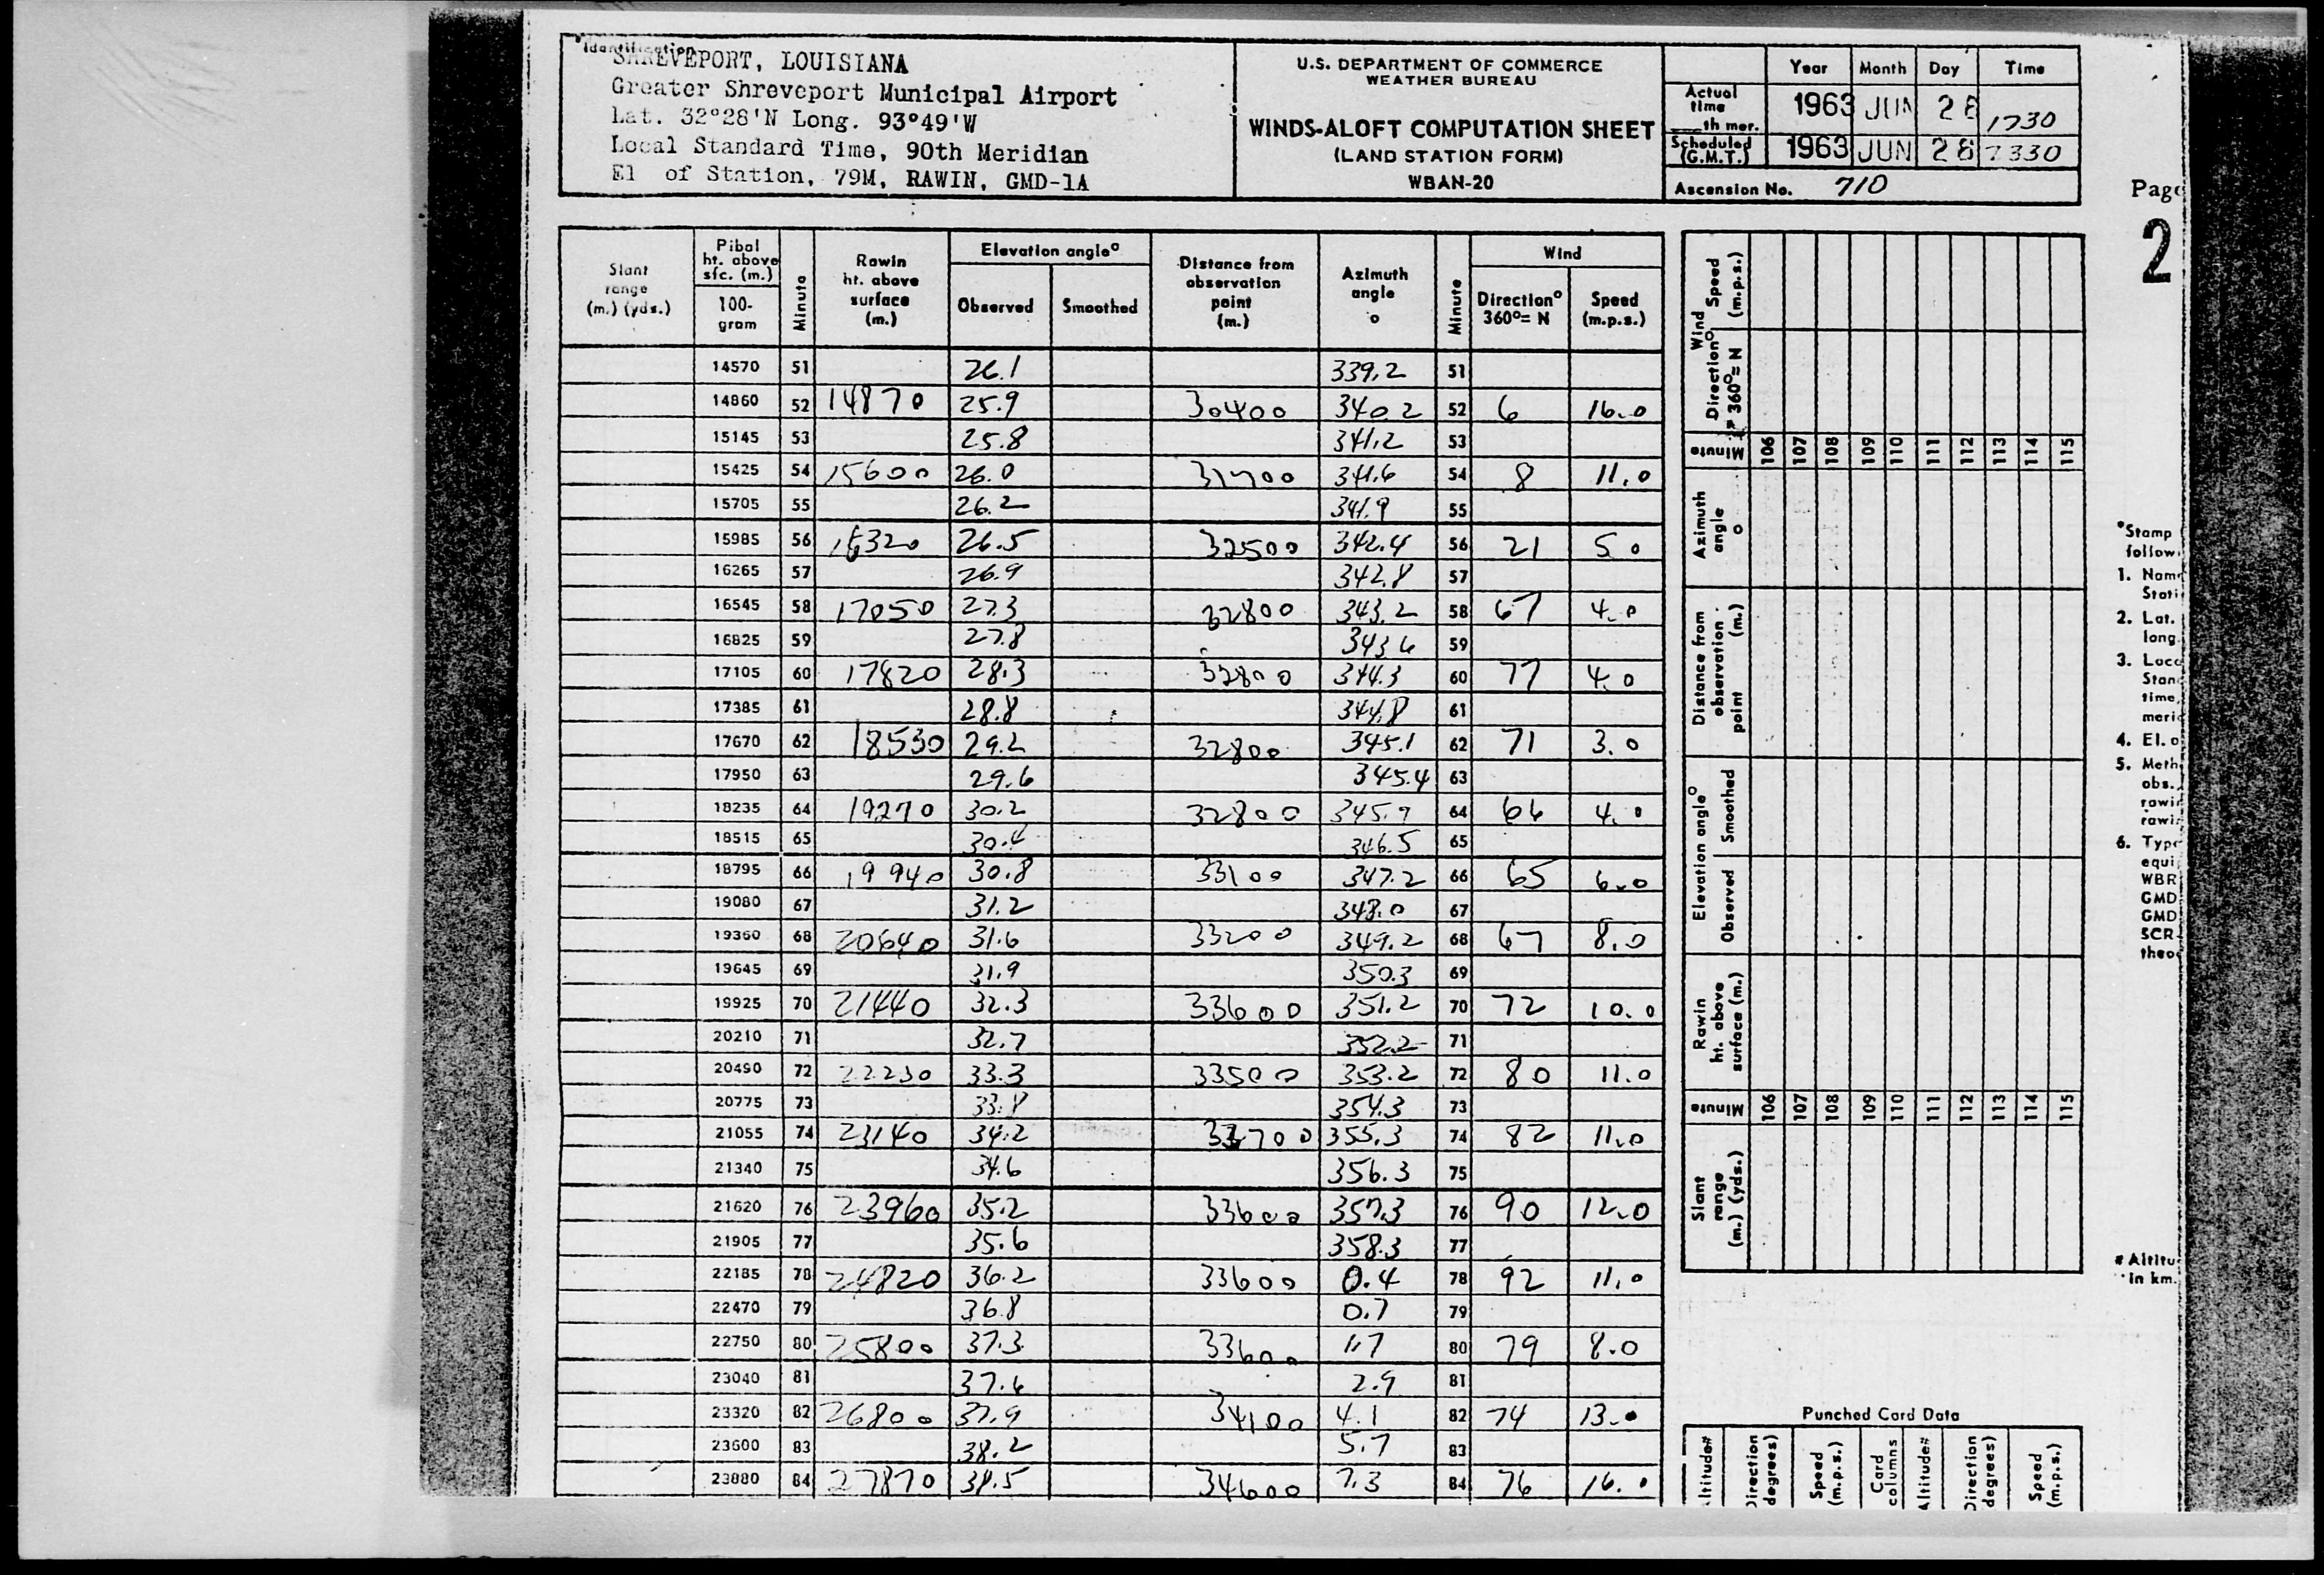 *Identification
SHREVEPORT, LOUISIANA
Greater Shreveport Municipal Airport
Lat. 32°28'N Long. 93°49'W
Local Standard Time, 90th Meridian
El of Station, 79M, RAWIN, GMD-1A
U.S. DEPARTMENT OF COMMERCE
WEATHER BUREAU
WINDS-ALOFT COMPUTATION SHEET
(LAND STATION FORM)
WBAN-20
Year Month Day Time
Actual time th mer. 1963 JUN 28 1730
Scheduled (G.M.T.) 1963 JUN 28 2330
Ascension No. 710
Page
2
Slant range (m.) (yds.)
Pibal ht. above sfc. (m.) 100-gram
Minute
Rawin ht. above surface (m.)
Elevation angle° Observed Smoothed
Distance from observation point (m.)
Azimuth angle °
Minute
Wind Direction° 360°= N Speed (m.p.s.)
14570 51 26.1 339.2 51
14860 52 14870 25.9 30400 340.2 52 6 16.0
15145 53 25.8 341.2 53
15425 54 15600 26.0 31700 341.6 54 8 11.0
15705 55 26.2 341.9 55
15985 56 16320 26.5 32500 342.4 56 21 5.0
16265 57 26.9 342.8 57
16545 58 17050 27.3 32800 343.2 58 67 4.0
16825 59 27.8 343.6 59
17105 60 17820 28.3 32800 344.3 60 77 4.0
17385 61 28.8 344.8 61
17670 62 18530 29.2 32800 345.1 62 71 3.0
17950 63 29.6 345.4 63
18235 64 19270 30.2 32800 345.9 64 66 4.0
18515 65 30.4 346.5 65
18795 66 19940 30.8 33100 347.2 66 65 6.0
19080 67 31.2 348.0 67
19360 68 20640 31.6 33200 349.2 68 67 8.0
19645 69 31.9 350.3 69
19925 70 21440 32.3 33600 351.2 70 72 10.0
20210 71 32.7 352.2 71
20490 72 22230 33.3 33500 353.2 72 80 11.0
20775 73 33.8 354.3 73
21055 74 23140 34.2 33700 355.3 74 82 11.0
21340 75 34.6 356.3 75
21620 76 23960 35.2 33600 357.3 76 90 12.0
21905 77 35.6 358.3 77
22185 78 24820 36.2 33600 0.4 78 92 11.0
22470 79 36.8 0.7 79
22750 80 25800 37.3 33600 1.7 80 79 8.0
23040 81 37.6 2.9 81
23320 82 26800 37.9 34100 4.1 82 74 13.0
23600 83 38.2 5.7 83
23880 84 27870 38.5 34600 7.3 84 76 16.0
Wind Direction° 360°= N Speed (m.p.s.)
Minute 106 107 108 109 110 111 112 113 114 115
Azimuth angle °
Distance from observation point (m.)
Elevation angle° Observed Smoothed
Rawin ht. above surface (m.)
Minute 106 107 108 109 110 111 112 113 114 115
Slant range (m.) (yds.)
*Stamp
follow
1. Name
Stati
2. Lat.
long.
3. Loca
Stan
time,
meri
4. El. o
5. Meth
obs.,
rawi
rawi
6. Type
equi
WBR
GMD
GMD
SCR
theo
#Altitu
in km.
Punched Card Data
Altitude# Direction degrees) Speed (m.p.s.) Card columns Altitude# Direction degrees) Speed (m.p.s.)